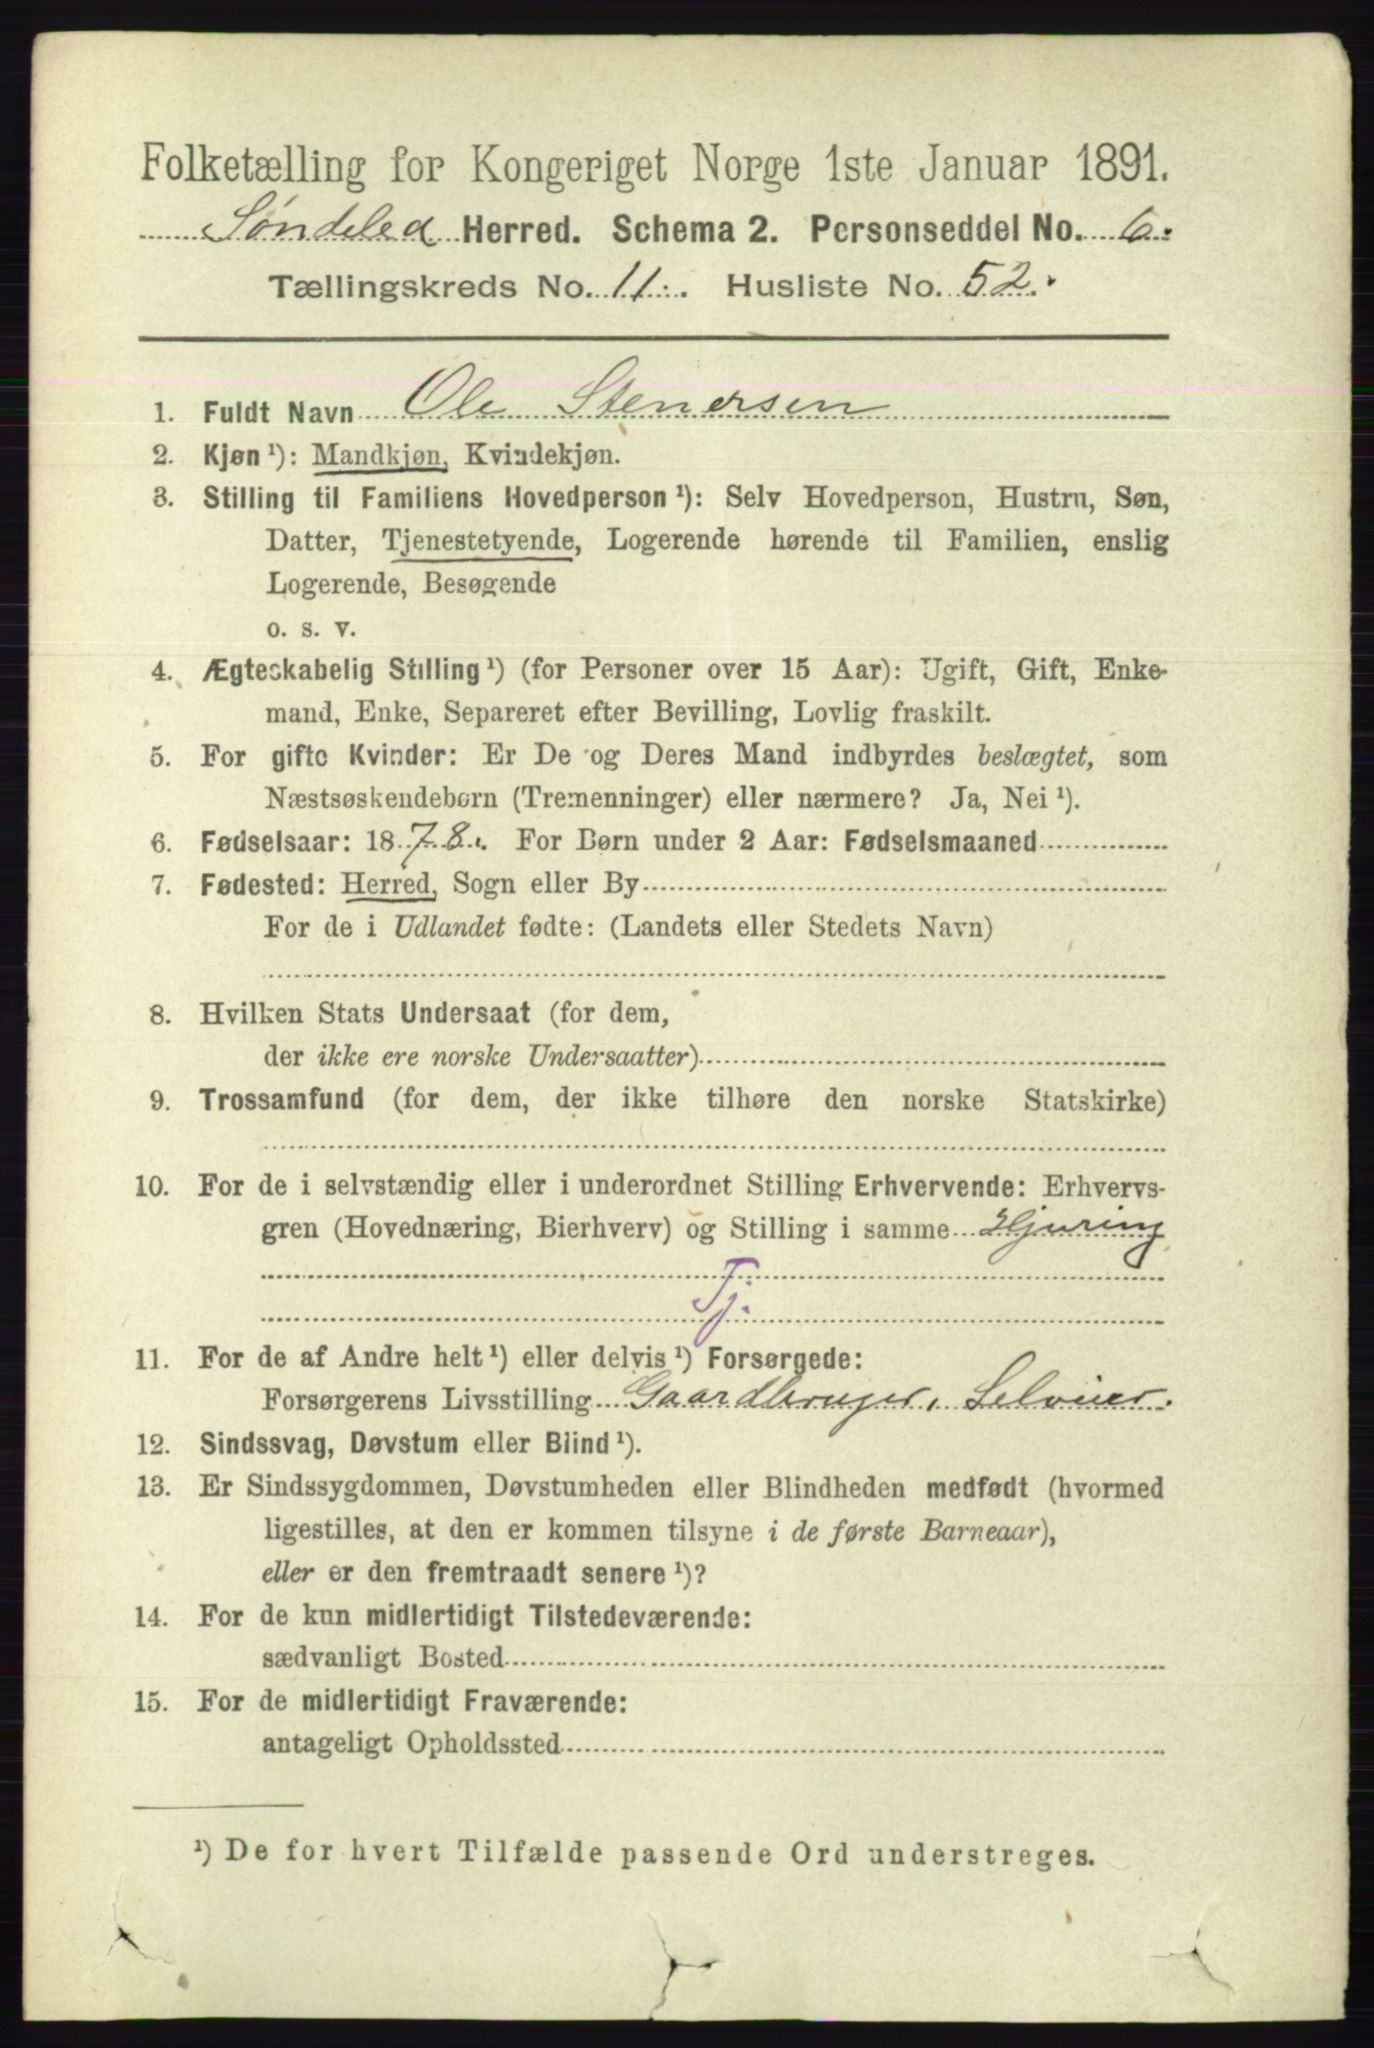 Folketælling for Kongeriget Norge 1ste Januar 1891.
Søndeled Herred. Schema 2. Personseddel No. 6.
Tællingskreds No. 11. Husliste No. 52.
1. Fuldt Navn Ole Stenersen
2. Kjøn ¹): Mandkjøn, Kvindekjøn.
3. Stilling til Familiens Hovedperson ¹): Selv Hovedperson, Hustru, Søn,
Datter, Tjenestetyende, Logerende hørende til Familien, enslig
Logerende, Besøgende
o. s. v.
4. Ægteskabelig Stilling ¹) (for Personer over 15 Aar): Ugift, Gift, Enke-
mand, Enke, Separeret efter Bevilling, Lovlig fraskilt.
5. For gifte Kvinder: Er De og Deres Mand indbyrdes beslægtet, som
Næstsøskendebørn (Tremenninger) eller nærmere? Ja, Nei ¹).
6. Fødselsaar: 1878. For Børn under 2 Aar: Fødselsmaaned
7. Fødested: Herred, Sogn eller By
For de i Udlandet fødte: (Landets eller Stedets Navn)
8. Hvilken Stats Undersaat (for dem,
der ikke ere norske Undersaatter)
9. Trossamfund (for dem, der ikke tilhøre den norske Statskirke)
10. For de i selvstændig eller i underordnet Stilling Erhvervende: Erhvervs-
gren (Hovednæring, Bierhverv) og Stilling i samme Hjuring
Tj.
11. For de af Andre helt ¹) eller delvis ¹) Forsørgede:
Forsørgerens Livsstilling Gaardbruger, Selveier.
12. Sindssvag, Døvstum eller Blind ¹).
13. Er Sindssygdommen, Døvstumheden eller Blindheden medfødt (hvormed
ligestilles, at den er kommen tilsyne i de første Barneaar),
eller er den fremtraadt senere ¹)?
14. For de kun midlertidigt Tilstedeværende:
sædvanligt Bosted
15. For de midlertidigt Fraværende:
antageligt Opholdssted
¹) De for hvert Tilfælde passende Ord understreges.